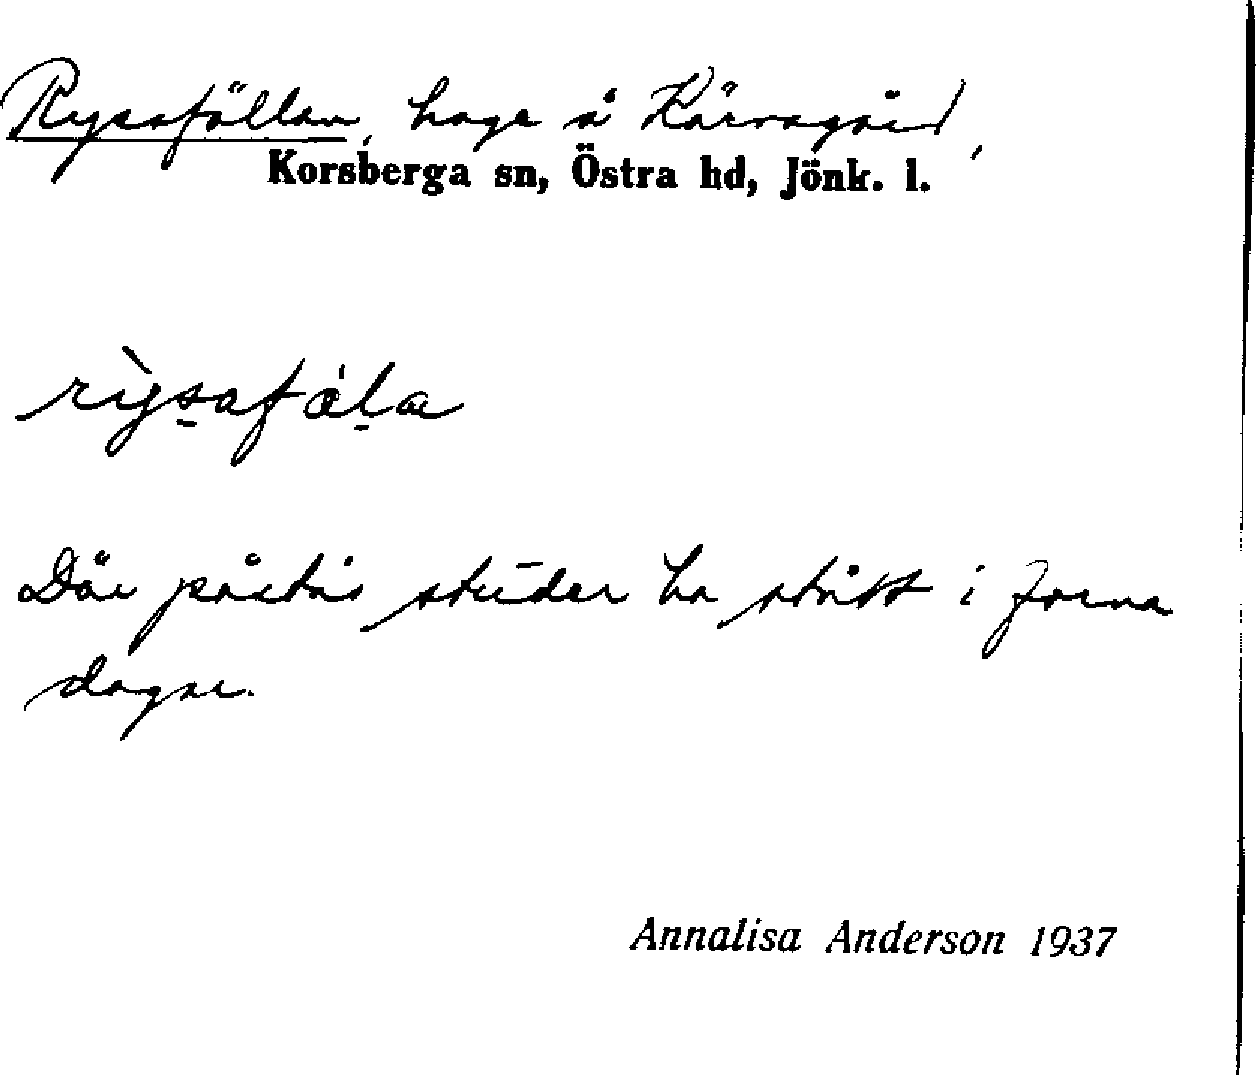 Rysafällan, hage å Kärragård,
Korsberga sn, Östra hd, Jönk. l.
rỳsafäla
Där påstås strider ha stått i forna
dagar.
Annalisa Anderson 1937